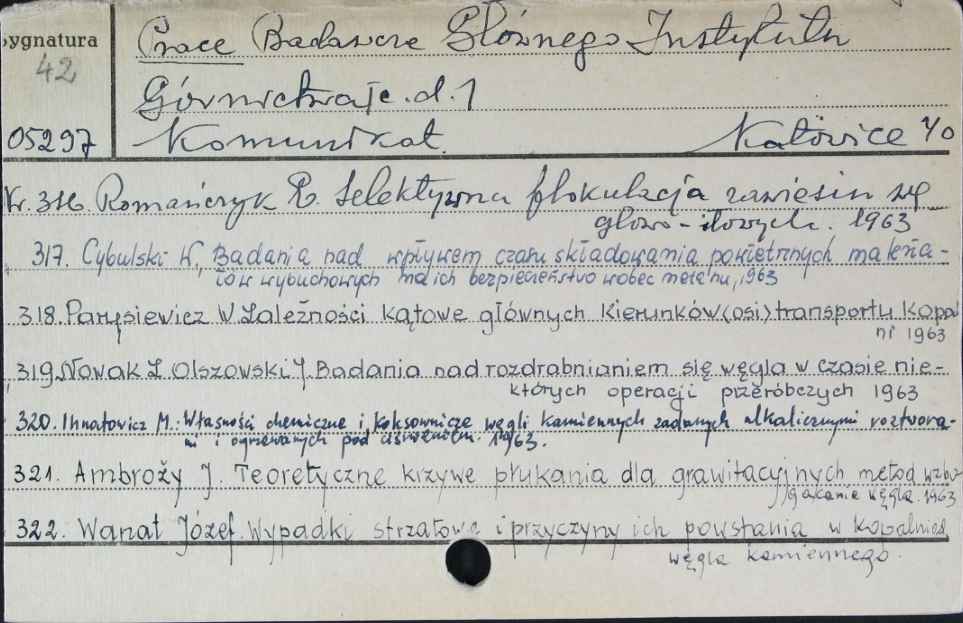 Sygnatura
42
05297
Prace Badawcze Głównego Instytutu
Górnictwa c.d. 1
Komunikat. Katowice 40
Nr. 316. Romańczyk E. Selektywna flokulacja zawiesin węg-
glowo-iłowych. 1963
317. Cybulski W., Badania nad wpływem czasu składowania powietrznych materia-
łów wybuchowych na ich bezpieczeństwo wobec metanu, 1963
318. Parysiewicz W Zależności kątowe głównych kierunków (osi) transportu kopal
ni 1963
319. Nowak Z. Olszowski J. Badania nad rozdrabnianiem się węgla w czasie nie-
których operacji przeróbczych 1963
320. Ihnatowicz M.: Własności chemiczne i koksownicze węgli kamiennych zadanych alkalicznymi roztwora-
mi i ogrzewanych pod ciśnieniem. 1963.
321. Ambroży J. Teoretyczne krzywe płukania dla grawitacyjnych metod wzbo-
gacania węgla. 1963
322. Wanat Józef. Wypadki strzałowe i przyczyny ich powstania w kopalniach
węgla kamiennego.